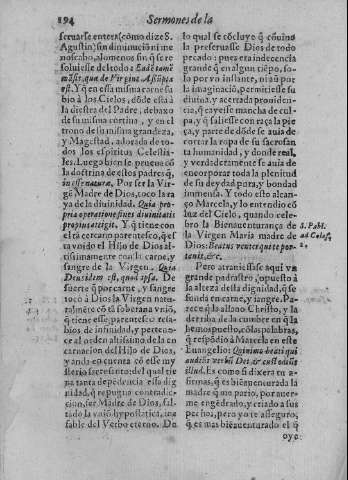 194
Sermones de la
seruarse entera (como dize S.
Agustin) sin diminuciõ ni me
noscabo, alomenos sin q̃ se re
soluiesse del todo: Eadẽ tamẽ
est. Y q̃ en essa misma carne su
bio à los Cielos, dõde està à
la diestra del Padre, debaxo
de su misma cortina, y en el
trono de su misma grandeza,
y Magestad, adorada de to-
dos los espiritus Celestia-
les. Luego bien se prueua cõ
la dotrina de estos padres q̃,
in esse naturæ, Por ser la Vir-
gẽ Madre de Dios, toco la ra
ya de la diuinidad. Quia pro-
pria operatione fines diuinitatis
propius attigit. Y q̃ tiene con
el tã cercano parentesco, q̃ es
ta vnido el Hijo de Dios al-
tissimamente con la carne, y
sangre de la Virgen. Quia
Deus idem est, quod ipsa. De
suerte q̃ por carne, y sangre
tocò à Dios la Virgen natu-
ralmẽte cõ tã soberana vniõ,
q̃ tiene esse parentesco rela-
bios de infinidad, y pertene-
ce al orden altissimo de la en
carnacion del Hijo de Dios,
y anda en cuenta cõ este my
sterio sacrosanto: del qual tie
ne tanta dependencia essa dig
nidad, q̃ repugna contradic-
cion, ser Madre de Dios, fal-
tado la vniõ hypostatica, ine
fable del Verbo eterno. De
lo qual se cõcluye q̃ cõuino
la preseruasse Dios de todo
pecado: pues era indecencia
grande q̃ en algun tiẽpo, so-
lo por vn instante, ni aũ por
la imaginaciõ, permitiesse su
diuina, y acertada prouiden-
cia, q̃ cayesse mancha de cul-
pa, q̃ saliesse con raça la pie
ça, y parte de dõde se auia de
cortar la ropa de su sacrosan
ta humanidad, y donde real,
y verdaderamente se auia de
encorporar toda la plenitud
de su deydad pura, y bondad
immensa. Y todo esto alcan-
ço Marcela, y lo entendio cõ
luz del Cielo, quando cele-
bro la Bienauenturança de
la Virgen Maria madre de
Dios: Beatus venter qui te por-
tauit, &c.
S. Pabl.
ad Colos.
2.
Pero atrauiessase aqui vn
grande padrastro, opuesto à
la alteza desta dignidad, q̃ se
funda en carne, y sangre. Pa-
rece q̃ la allano Christo, y la
derriba de la cumbre en q̃ la
hemos puesto, cõ las palabras,
q̃ respõdio à Marcela en este
Euangelio: Quinimo beati qui
audiũt verbũ Dei, & custodiũt
illud. Es como si dixera en a-
firmas, q̃ es biẽauenturada la
madre q̃ me pario, por auer-
me engẽdrado, y criado à sus
pechos, pero yo te asseguro,
q̃ es mas biẽauenturado el q̃
oye